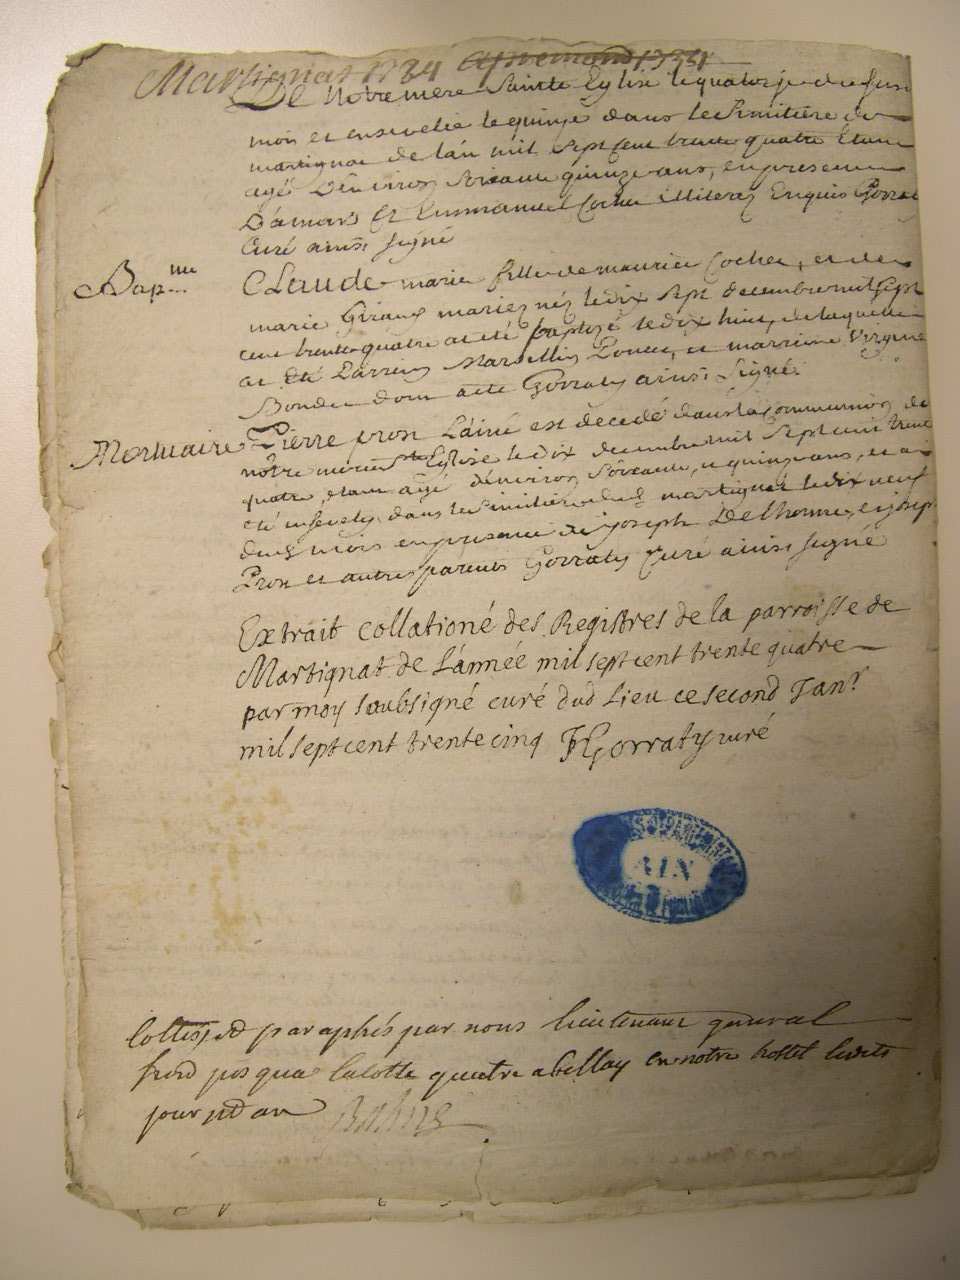 Martignat 1734 Apremond 1734
De Notre mere Sainte Eglise le quatorze du susd
mois et ensevelie le quinze dans le Simitière de
martignac de l'an mil sept cent trente quatre Etant
agé D'environ soixante quinze ans, en presence
Damars Et Emmanuel Cochet illiterez Enquis Gorraty
Curé ainsi signé
Bap.me CLaude marie fille de maurice Cochet, et de
marie Giraud mariez née le dix sept decembre mil sept
cent trente quatre a eté baptizé le dix huit, de laquelle
a Eté Parrein Marcellin Poncet, et marreine Virginie
Bondet dont acte Gorraty ainsi Signé
Mortuaire Pierre pron L'ainé est decedé dans la Communion de
nôtre mere Ste Eglise le dix decembre mil sept cent trente
quatre, etant agé d'environ soixante, et quinze ans, et a
eté ensevely dans le Simitiere de martignat le dix neuf
dud mois en presence de joseph Delhomme, et joseph
Pron et autres parents Gorraty Curé ainsi signé
Extrait collationé des Registres de la parroisse de
Martignat de L'année mil sept cent trente quatre
par moy soubsigné curé dud Lieu ce second Janr
mil sept cent trente cinq Gorraty curé
AIN
Cottes, et paraphés par nous lieutenant general
jusqua la cotte quatre a bellay en notre hostel lesdits
jour et an